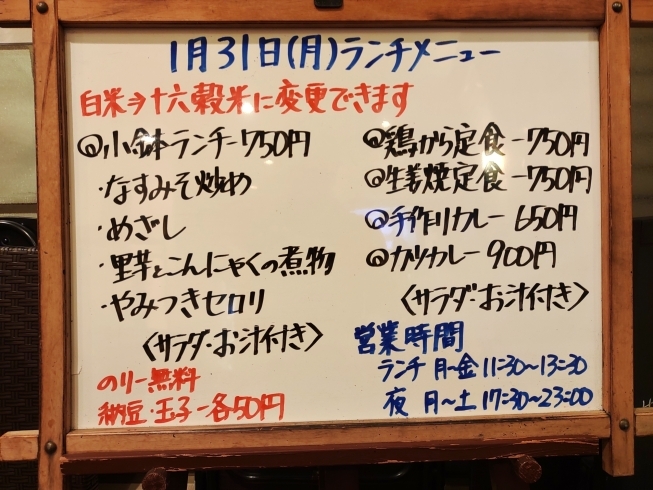 1月31日(月)ランチメニュー
白米⇒十六穀米に変更できます
◎小鉢ランチー750円
・なすみそ炒め
・めざし
・里芋とこんにゃくの煮物
・やみつきセロリ
〈サラダ・お汁付き〉
のりー無料
納豆・玉子ー各50円
◎鶏から定食ー750円
◎生姜焼定食ー750円
◎手作りカレー 650円
◎カツカレー 900円
〈サラダ・お汁付き〉
営業時間
ランチ 月〜金 11:30〜13:30
夜 月〜土 17:30〜23:00